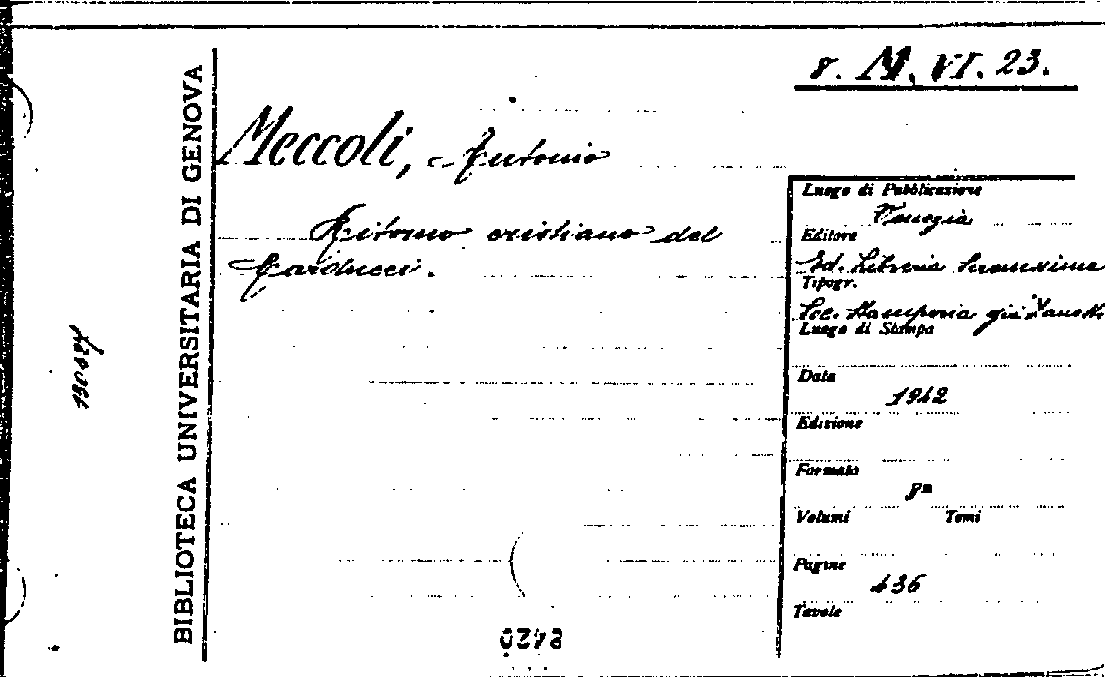 8. M. VI. 23.
BIBLIOTECA UNIVERSITARIA DI GENOVA
Meccoli, Antonio
Ritorno cristiano del
Carducci.
Luogo di Pubblicazione
Venezia
Editore
Ed. Libreria Serenissima
Tipogr.
Soc. Stamperia già Zanetti
Luogo di Stampa
Data
1942
Edizione
Formato
8º
Volumi Tomi
Pagine
136
Tavole